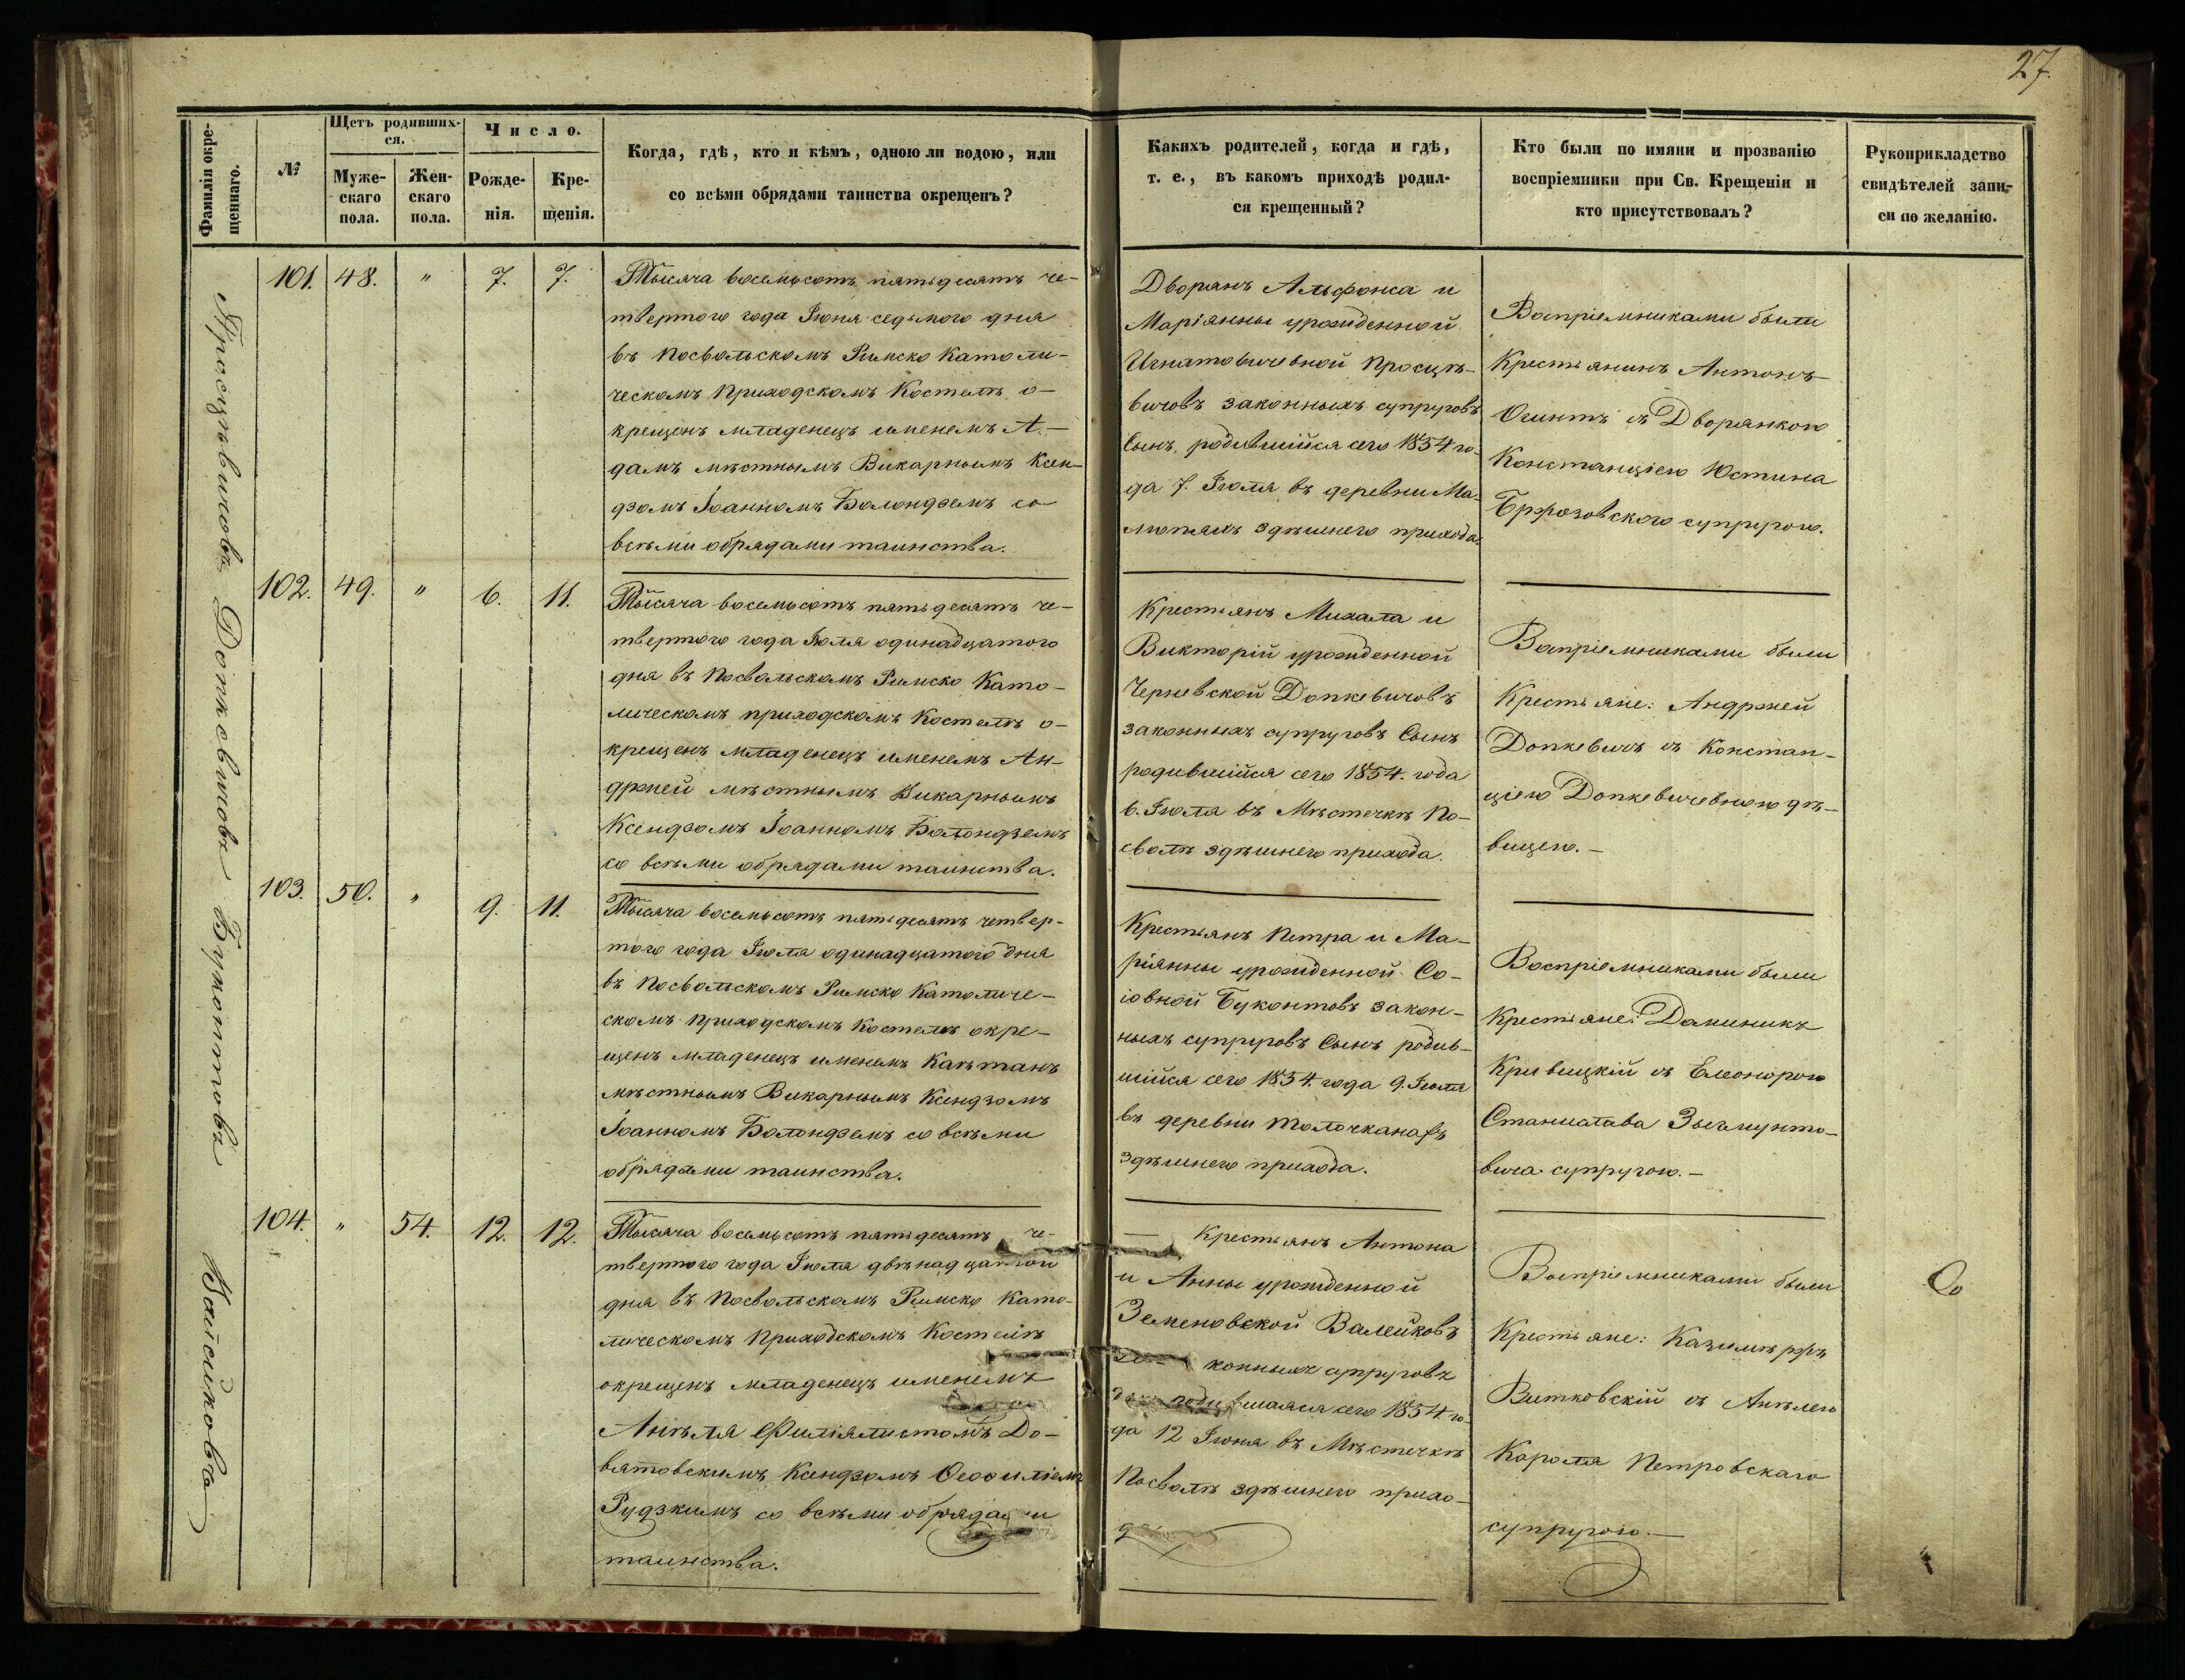 27.
Фамилія окре-
щеннаго.
№
Щетъ родивших-
ся.
Муже-
скаго
пола.
Жен-
скаго
пола.
Число.
Рожде-
нія.
Кре-
щенія.
Когда, гдѣ, кто и кѣмъ, одною ли водою, или
со всѣми обрядами таинства окрещенъ?
Какихъ родителей, когда и гдѣ,
т. е., въ какомъ приходѣ родил-
ся крещенный?
Кто были по имяни и прозванію
воспріемники при Св. Крещеніи и
кто присутствовалъ?
Рукоприкладство
свидѣтелей запи-
си по желанію.
Просцѣвичовъ
101. 48. " 7. 7.
Тысяча восемьсотъ пятьдесятъ че-
твертого года Іюня седьмого дня
въ Посвольскомъ Римско Католи-
ческомъ Приходскомъ Костелѣ о-
крещенъ младенецъ именемъ А-
дамъ мѣстнымъ Викарнымъ Ксен-
дзомъ Іоанномъ Болондземъ со
всѣми обрядами таинства.
Дворянъ Альфонса и
Маріянны урожденной
Игнатовичевной Просцѣ-
вичовъ законныхъ супруговъ
Сынъ, родившійся сего 1854 го-
да 7. Іюля въ деревни Ма-
мопяхъ здѣшнего прихода.
Воспріемниками были
Крестьянинъ Антонъ
Огинтъ съ Дворянкою
Констанціею Юстина
Бржозовского супругою.
Допкевичовъ
102. 49. " 6. 11.
Тысяча восемьсотъ пятьдесятъ че-
твертого года Іюля одинадцатого
дня въ Посвольскомъ Римско Като-
лическомъ приходскомъ Костелѣ о-
крещенъ младенецъ именемъ Ан-
држей мѣстнымъ Викарнымъ
Ксендзомъ Іоанномъ Болондземъ
со всѣми обрядами таинства.
Крестьянъ Михала и
Викторіи урожденной
Черневской Допкевичовъ
законныхъ супруговъ Сынъ
родившійся сего 1854. года
6. Іюля въ Мѣстечкѣ По-
сволѣ здѣшнего прихода.
Воспріемниками были
Крестьяне: Андржей
Допкевичъ съ Констан-
ціею Допкевичевною дѣ-
вицею.
Буконтовъ
103. 50. " 9. 11.
Тысяча восемьсотъ пятьдесятъ четвер-
того года Іюля одинадцатого дня
въ Посвольскомъ Римско Католиче-
скомъ приходскомъ Костелѣ окре-
щенъ младенецъ именемъ Каѣтанъ
мѣстнымъ Викарнымъ Ксендзомъ
Іоанномъ Болондземъ со всѣми
обрядами таинства.
Крестьянъ Петра и Ма-
ріянны урожденной Со-
іовной Буконтовъ закон-
ныхъ супруговъ Сынъ родив-
шійся сего 1854 года 9. Іюля
въ деревни Толочканахъ
здѣшнего прихода.
Воспріемниками были
Крестьяне: Доминикъ
Кривицкій съ Елеонорою
Станислава Зыгмунто-
вича супругою.
Валейковъ
104. " 54. 12. 12.
Тысяча восемьсотъ пятьдесятъ че-
твертого года Іюля двѣнадцатого
дня въ Посвольскомъ Римско Като-
лическомъ Приходскомъ Костелѣ
окрещенъ младенецъ именемъ
Анѣля Филіялистомъ До-
вятовскимъ Ксендзомъ Ѳеофиліемъ
Рудзкимъ со всѣми обрядами
таинства.
Крестьянъ Антона
и Анны урожденной
Земеновской Валейковъ
конныхъ супруговъ
шаяся сего 1854 го-
да 12 Іюня въ Мѣстечкѣ
Посволѣ здѣшнего прихо-
Воспріемниками были
Крестьяне: Казимѣржъ
Витковскій съ Анѣлею
Кароля Петровскаго
супругою.